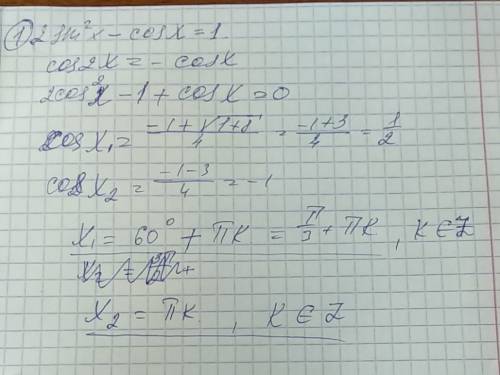 ① 2 sin²x - cosx = 1.
cos2x = - cosx
2cos²x - 1 + cosx = 0
cos x₁ = (-1 + √1+8)/4 = (-1+3)/4 = 1/2
cos x₂ = (-1-3)/4 = -1
x₁ = 60° + πk = π/3 + πk, k ∈ Z
x₂ = πk, k ∈ Z